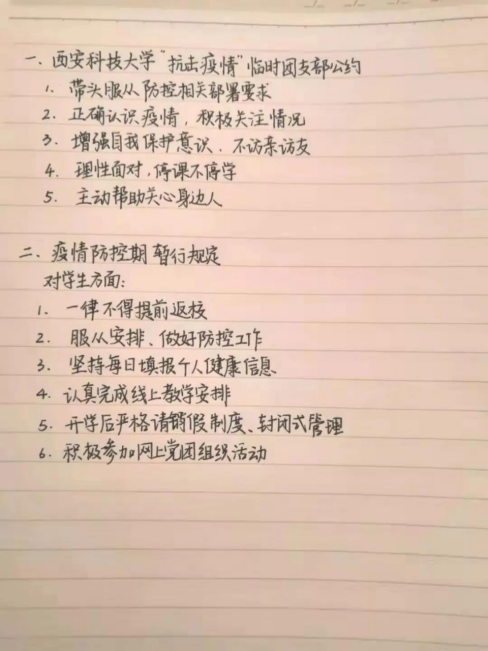 一、西安科技大学"抗击疫情"临时团支部公约
1. 带头服从防控相关部署要求
2. 正确认识疫情，积极关注情况
3. 增强自我保护意识、不访亲访友
4. 理性面对，停课不停学
5. 主动帮助关心身边人
二、疫情防控期暂行规定
对学生方面：
1. 一律不得提前返校
2. 服从安排、做好防控工作
3. 坚持每日填报个人健康信息
4. 认真完成线上教学安排
5. 开学后严格请销假制度、封闭式管理
6. 积极参加网上党团组织活动